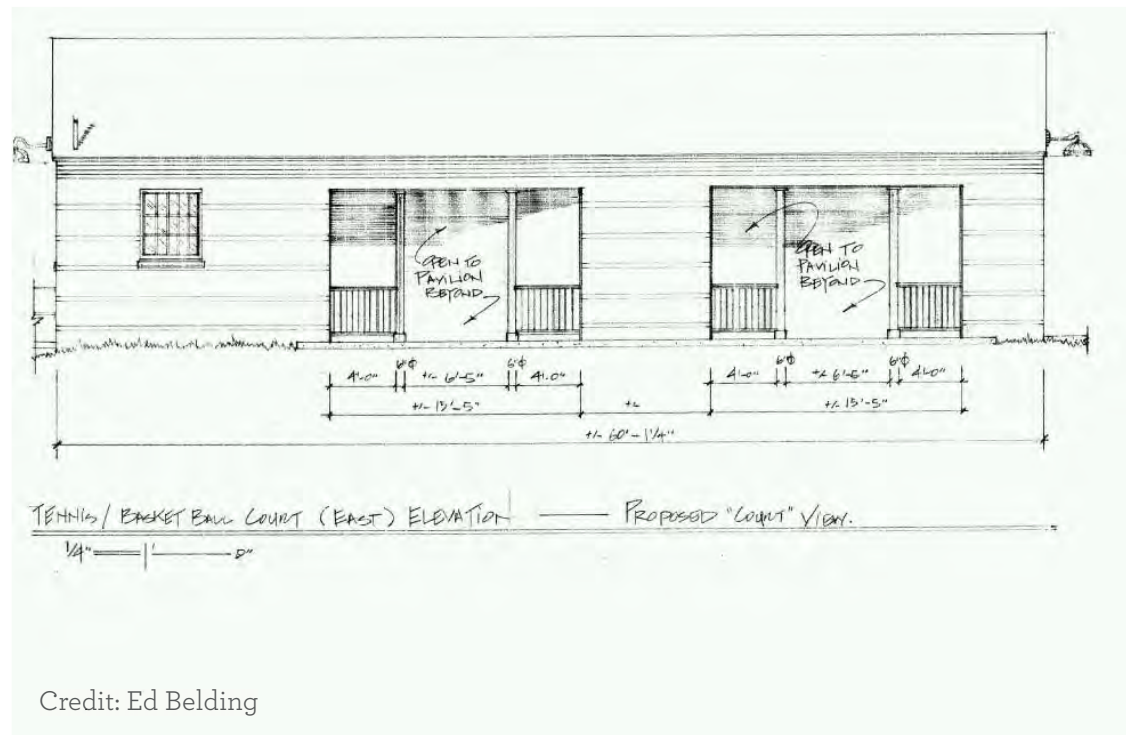 OPEN TO
PAVILION
BEYOND
OPEN TO
PAVILION
BEYOND
6"Φ 6"Φ 6"Φ 6"Φ
4'-0" +/- 6'-5" 4'-0" 4'-0" +/- 6'-5" 4'-0"
+/- 15'-5" +/- +/- 15'-5"
+/- 60'-1 1/4"
TENNIS / BASKET BALL COURT (EAST) ELEVATION — PROPOSED "COURT" VIEW.
1/4" 1' 0"
Credit: Ed Belding